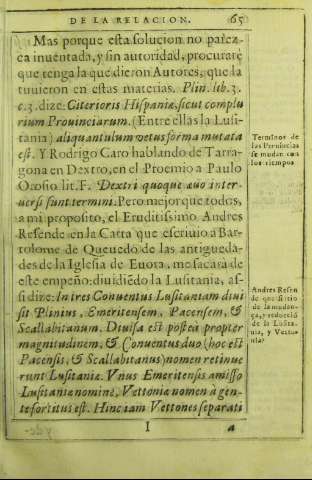 DE LA RELACION. 65
Mas porque esta solucion no parez-
ca inuentada, y sin autoridad, procurarè
que tenga la que dieron Autores, que la
tuuieron en estas materias. Plin. lib. 3.
c. 3. dize: Citerioris Hispaniæ, sicut complu
rium Prouinciarum. (Entre ellas la Lusi-
tania) aliquantulum vetus forma mutata
est. Y Rodrigo Caro hablando de Tarra-
gona en Dextro, en el Proemio a Paulo
Orosio lit. F. Dextri quoque æuo inter-
uersi sunt termini. Pero mejor que todos,
a mi proposito, el Eruditissimo Andres
Resende en la Carta que escriuio a Bar-
tolome de Queuedo de las antigueda-
des de la Iglesia de Euora, me sacarà de
este empeño: diuidiēdo la Lusitania, as-
si dize: In tres Conuentus Lusitaniam diui
sit Plinius, Emeritensem, Pacensem, &
Scallabitanum. Diuisa est postea propter
magnitudinem, & Conuentus duo (hoc est
Pacensis, & Scallabitanus) nomen retinue
runt Lusitaniæ. Vnus Emeritensis amisso
Lusitaniæ nominè, Vettonia nomen à gen-
te sortitus est. Hinc iam Vettones separati
I
a
Terminos de
las Prouincias
se mudan con
los tiempos
Andres Resen
de que dixo
de la mudan-
ça, y reducciō
de la Lusita-
nia, y Vetto-
nia?